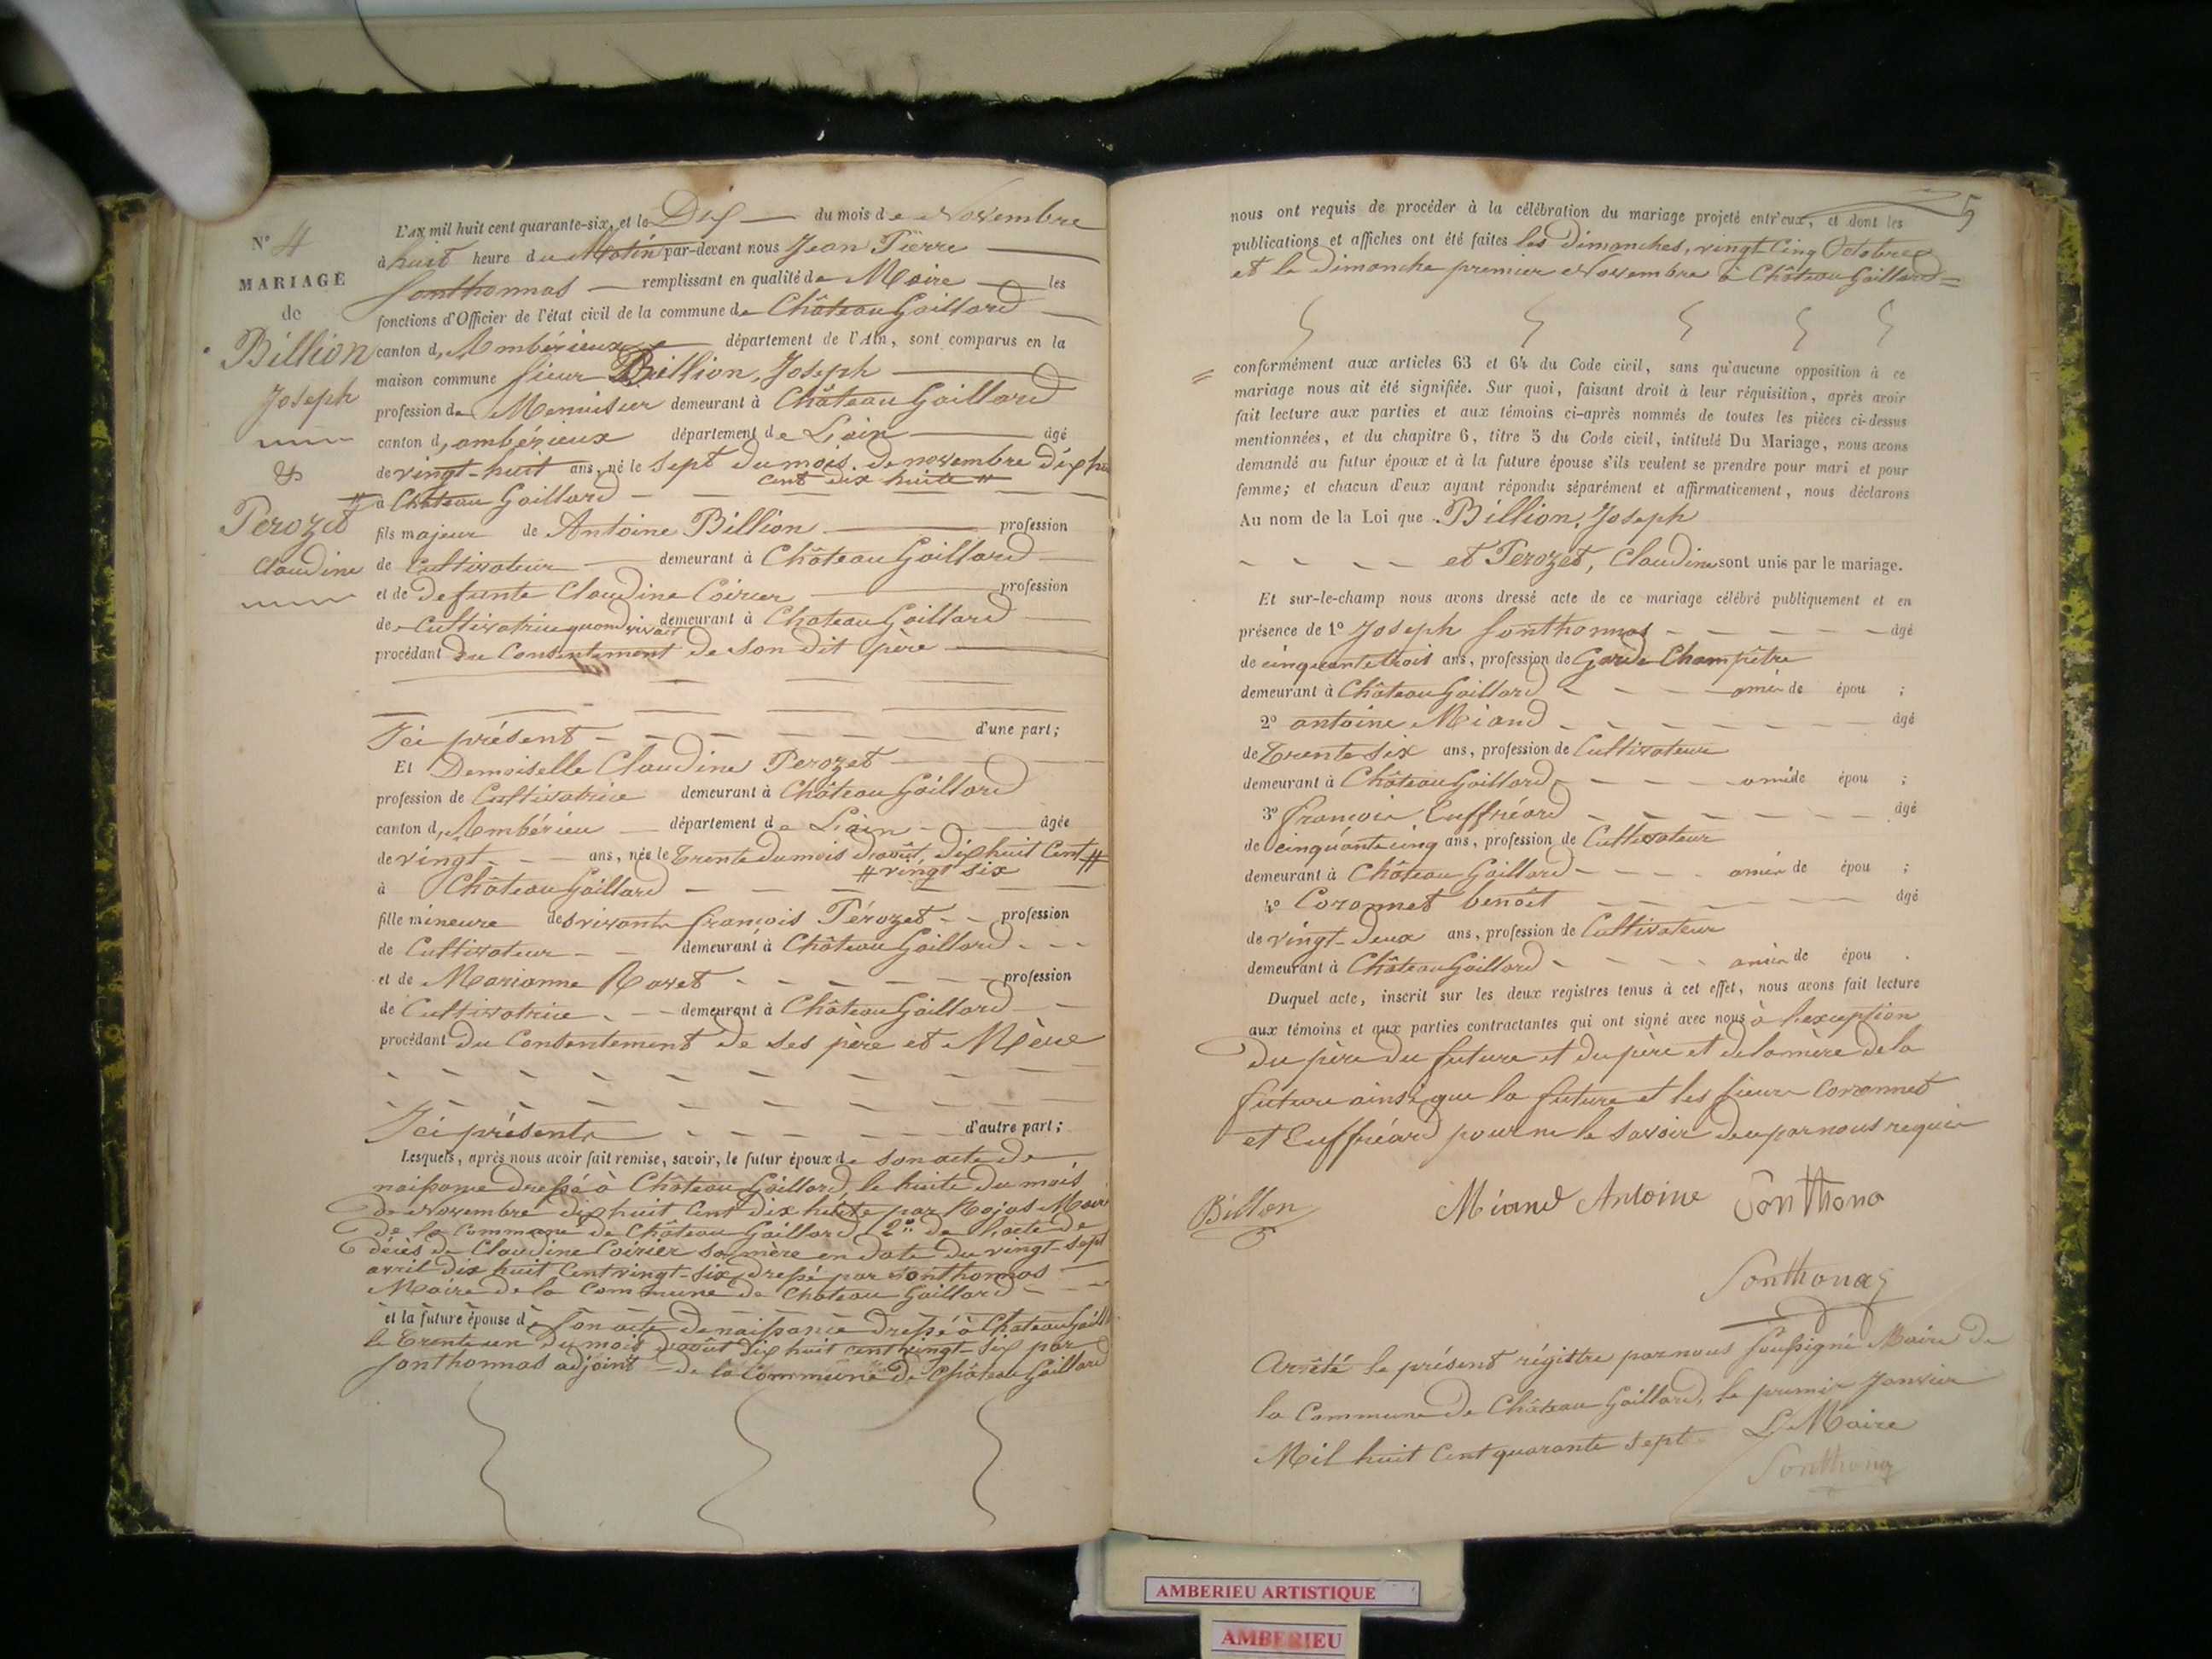 N° 4
MARIAGE
de
Billion
Joseph
&
Perozet
Claudine
L'AN mil huit cent quarante-six, et le Dix du mois de Novembre
à huit heure du Matin par-devant nous Jean Pierre
Sonthonnas remplissant en qualité de Maire les
fonctions d'Officier de l'état civil de la commune de Château Gaillard
canton d'Ambérieux département de l'Ain, sont comparus en la
maison commune sieur Billion, Joseph
profession de Menuisier demeurant à Château Gaillard
canton d'ambérieux département de L'ain âgé
de vingt-huit ans, né le sept du mois de novembre dix huit
cent dix huite
à Château Gaillard
fils majeur de Antoine Billion profession
de Cultivateur demeurant à Château Gaillard
et de defunte Claudine Coirier profession
de Cultivatrice quand vivait demeurant à Chateau Gaillard
procédant du Consentement de son dit père
Ici présent d'une part;
Et Demoiselle Claudine Perozet
profession de Cultivatrice demeurant à Château Gaillard
canton d'Ambérieu département de L'ain âgée
de vingt ans, née le trente du mois d'août, dix huit Cent #
# vingt six
à Château Gaillard
fille mineure des vivants françois Pérozet profession
de Cultivateur demeurant à Château Gaillard
et de Marianne Ravet profession
de Cultivatrice demeurant à Château Gaillard
procédant du Consentement de ses père et Mère
Ici présents d'autre part;
Lesquels, après nous avoir fait remise, savoir, le futur époux de son acte de
naissance dressé à Château Gaillard le huite du mois
de Novembre dix huit Cent dix huite par Rojas Maire
de la Commune de Château Gaillard 2° de l'acte de
décès de Claudine Coirier sa mère en date du vingt-sept
avril dix huit Cent vingt-six dressé par Sonthonnas
Maire de la Commune de Château Gaillard
et la future épouse de son acte de naissance dressé à Chateau Gaill
le trente un du mois d'août dix huit cent vingt-six par
Sonthonnas adjoint de la Commune de Château Gaillard
5
nous ont requis de procéder à la célébration du mariage projeté entr'eux, et dont les
publications et affiches ont été faites les dimanches, vingt Cinq Octobre
et le dimanche premier Novembre à Château Gaillard =
conformément aux articles 63 et 64 du Code civil, sans qu'aucune opposition à ce
mariage nous ait été signifiée. Sur quoi, faisant droit à leur réquisition, après avoir
fait lecture aux parties et aux témoins ci-après nommés de toutes les pièces ci-dessus
mentionnées, et du chapitre 6, titre 5 du Code civil, intitulé Du Mariage, nous avons
demandé au futur époux et à la future épouse s'ils veulent se prendre pour mari et pour
femme; et chacun d'eux ayant répondu séparément et affirmativement, nous déclarons
Au nom de la Loi que Billion, Joseph
et Perozet, Claudine sont unis par le mariage.
Et sur-le-champ nous avons dressé acte de ce mariage célébré publiquement et en
présence de 1° Joseph Sonthonnas âgé
de cinquante trois ans, profession de Garde Champêtre
demeurant à Château Gaillard amis de épou ;
2° antoine Miand âgé
de trente six ans, profession de Cultivateur
demeurant à Château Gaillard ami de épou ;
3° françois Cuffréard âgé
de cinquante cinq ans, profession de Cultivateur
demeurant à Château Gaillard amis de épou ;
4° Coronnet benoit âgé
de vingt-deux ans, profession de Cultivateur
demeurant à Château Gaillard amis de épou .
Duquel acte, inscrit sur les deux registres tenus à cet effet, nous avons fait lecture
aux témoins et aux parties contractantes qui ont signé avec nous à l'exception
du père du future et du père et de la mère de la
future ainsi que la future et les sieurs Coronnet
et Cuffréard pour ne le savoir de ce par nous requis
Billon
Miand Antoine
Sonthona
Sonthonas
Arrêté le présent régistre par nous soussigné Maire de
la Commune de Château Gaillard, le premier Janvier
Mil huit Cent quarante sept
Le Maire
Sonthonas
AMBERIEU ARTISTIQUE
AMBERIEU